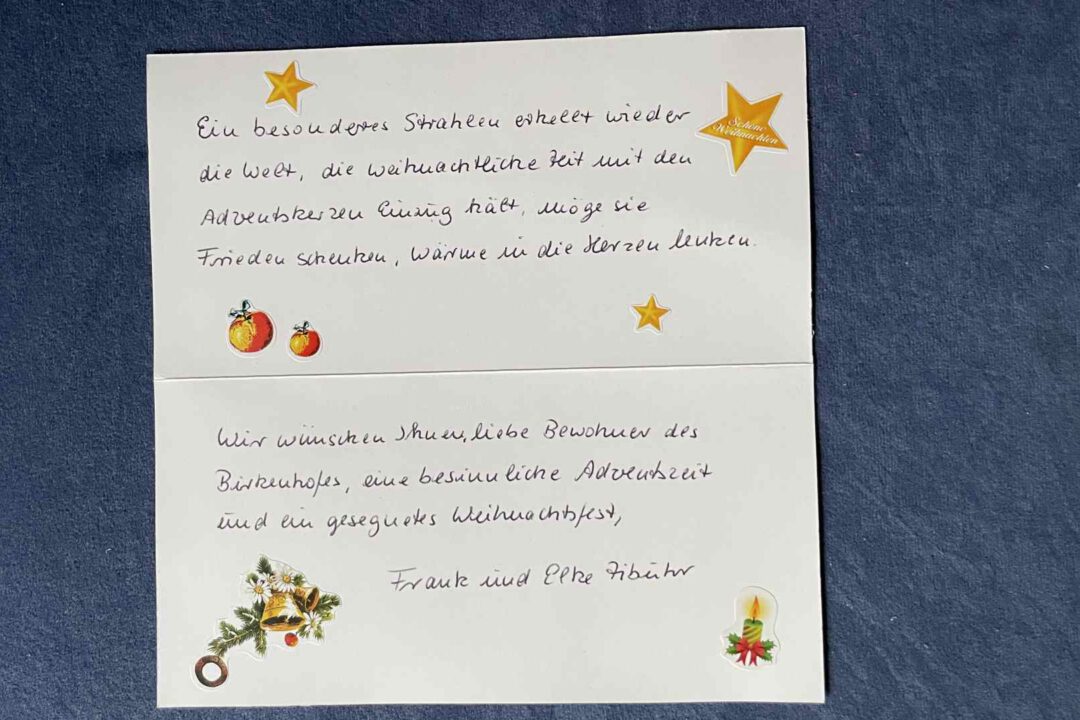 Ein besonderes Strahlen erhellt wieder
die Welt, die weihnachtliche Zeit mit den
Adventskerzen Einzug hält, möge sie
Frieden schenken, Wärme in die Herzen lenken.
Schöne
Weihnachten
Wir wünschen Ihnen, liebe Bewohner des
Birkenhofes, eine besinnliche Adventszeit
und ein gesegnetes Weihnachtsfest,
Frank und Elke Zibuhr